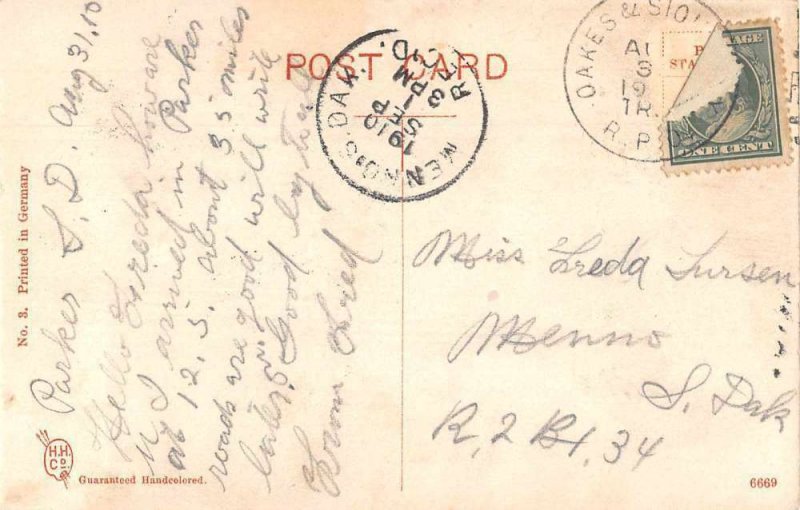 POST CARD
OAKES & SIO
R.P.
ONE CENT
MENNO, S. DAK.
SEP
1
3 PM
1910
REC'D.
Parker S. D. Aug 31, 10
Hello Freda how are
u I arrived in Parker
at 12.5. about 35 miles
roads are good will write
later Good by to all
From Fred
Miss Freda
Menno
S. Dak
R. 2 Bx. 34
No. 3. Printed in Germany
H.H.
Co
Guaranteed Handcolored.
6669